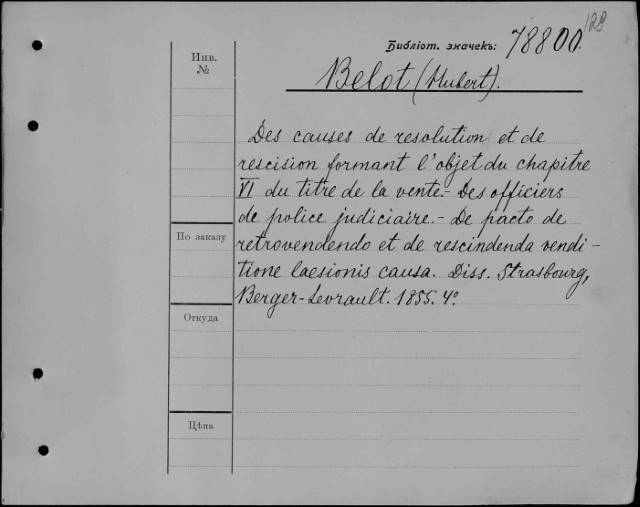 128
Библіот. значекъ: 78800.
Инв.
№
Belot (Hubert).
Des causes de resolution et de
rescision formant l'objet du chapitre
VI du titre de la vente.- Des officiers
de police judiciaire.- De pacto de
retrovendendo et de rescindenda vendi-
tione laesionis causa. Diss. Strasbourg,
Berger-Levrault. 1855. 4º.
По заказу
Откуда
Цѣна